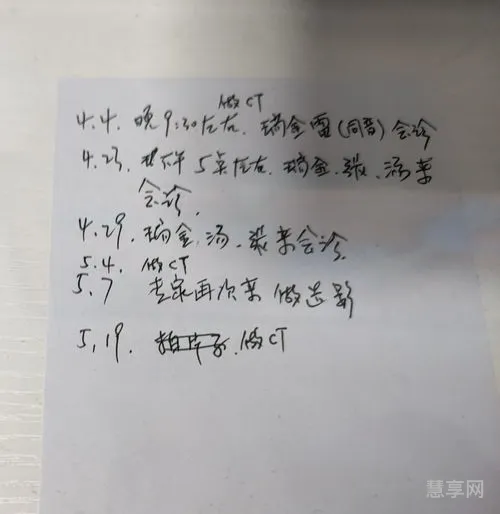 做CT
4.4. 晚9:30左右. 瑞金雷(同晋)会诊
4.23. 下午5点左右. 瑞金. 张. 汤来
会诊.
4.29. 瑞金. 汤. 张来会诊.
5.4. 做CT
5.7 专家再次来做造影
5.19. 做CT
慧享网